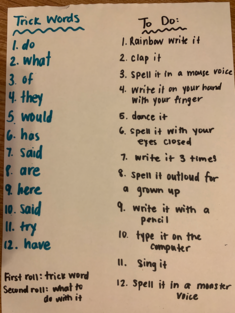 Trick Words
1. do
2. what
3. of
4. they
5. would
6. has
7. said
8. are
9. here
10. said
11. try
12. have
First roll: trick word
Second roll: what to
do with it
To Do:
1. Rainbow write it
2. clap it
3. Spell it in a mouse voice
4. write it on your hand
with your finger
5. dance it
6. Spell it with your
eyes closed
7. write it 3 times
8. Spell it outloud for
a grown up
9. write it with a
pencil
10. type it on the
computer
11. Sing it
12. Spell it in a monster
voice